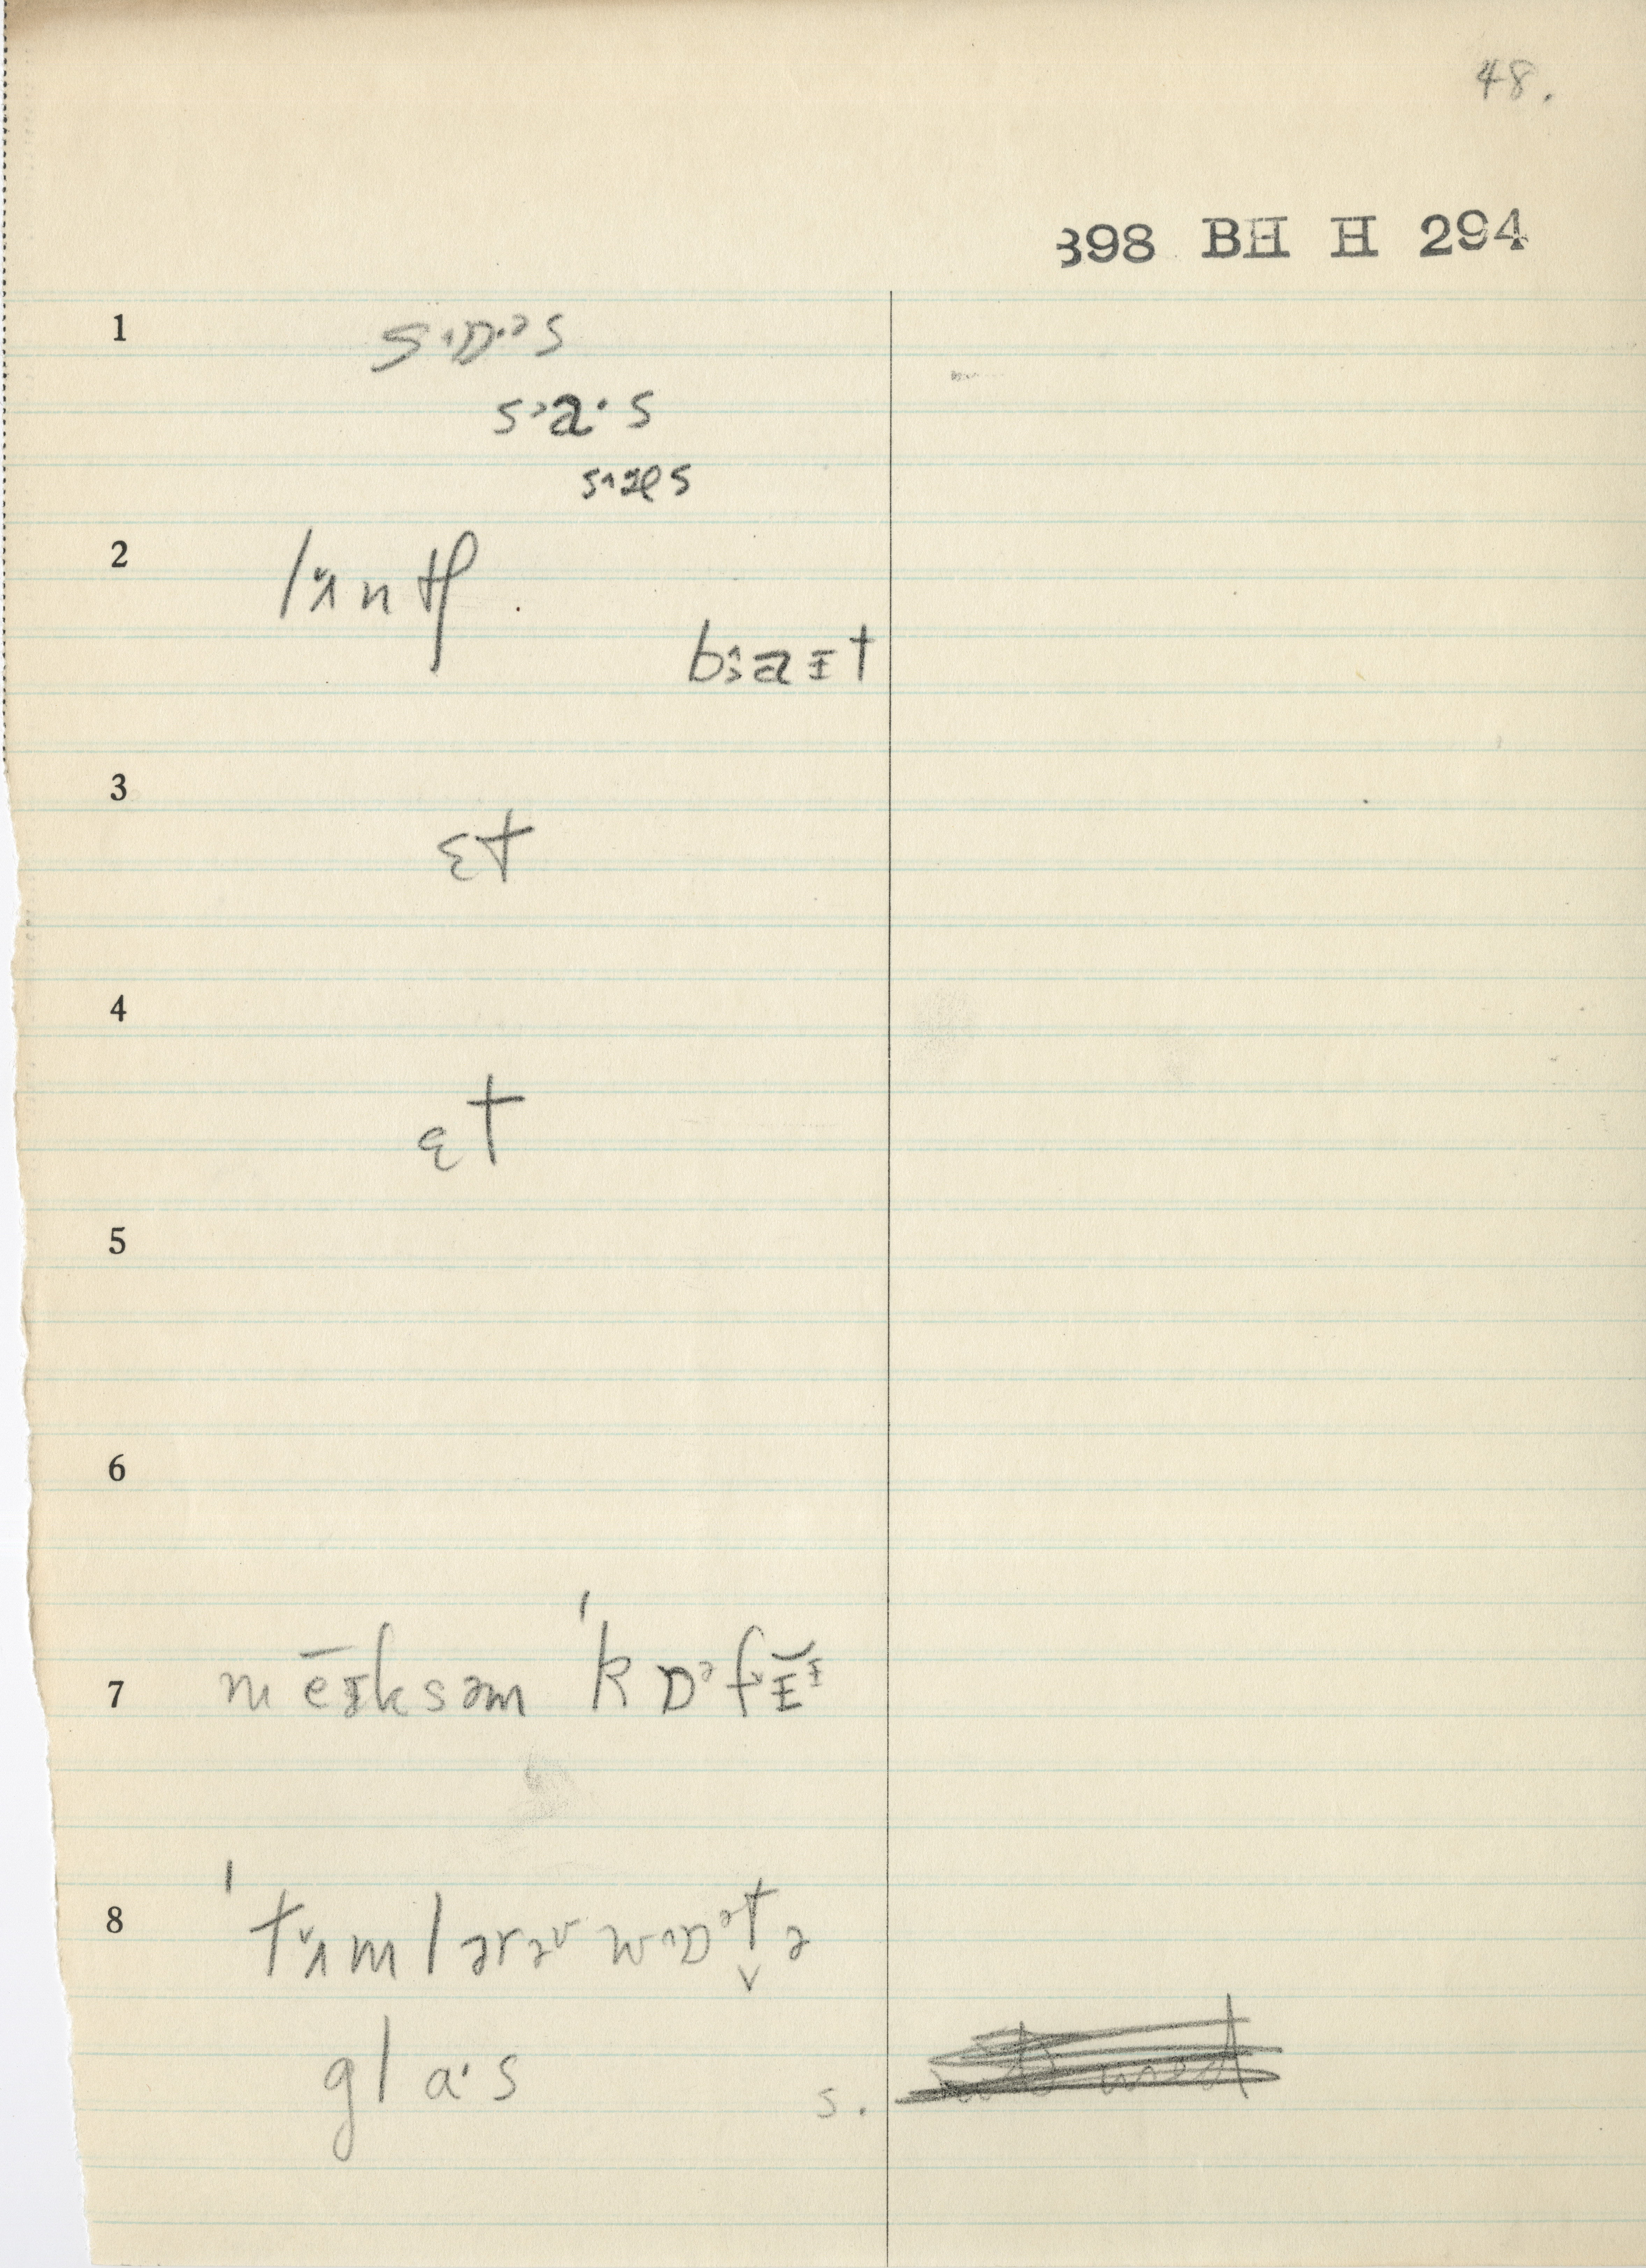 48.
398 BH H 294
1 s˄ɒ·ᵊs
sᵊa·s
s˄æs
2 lʌ̌ntʃ
bɜ̂aɪt
3 ɛt
4 ɛt
5
6
7 mēɪksəm ˈkɒᵊfɪ̆ᶦ
8 ˈtʌ̌mləɾəv w˄ɒᵊt̬ə
gla·s
s.